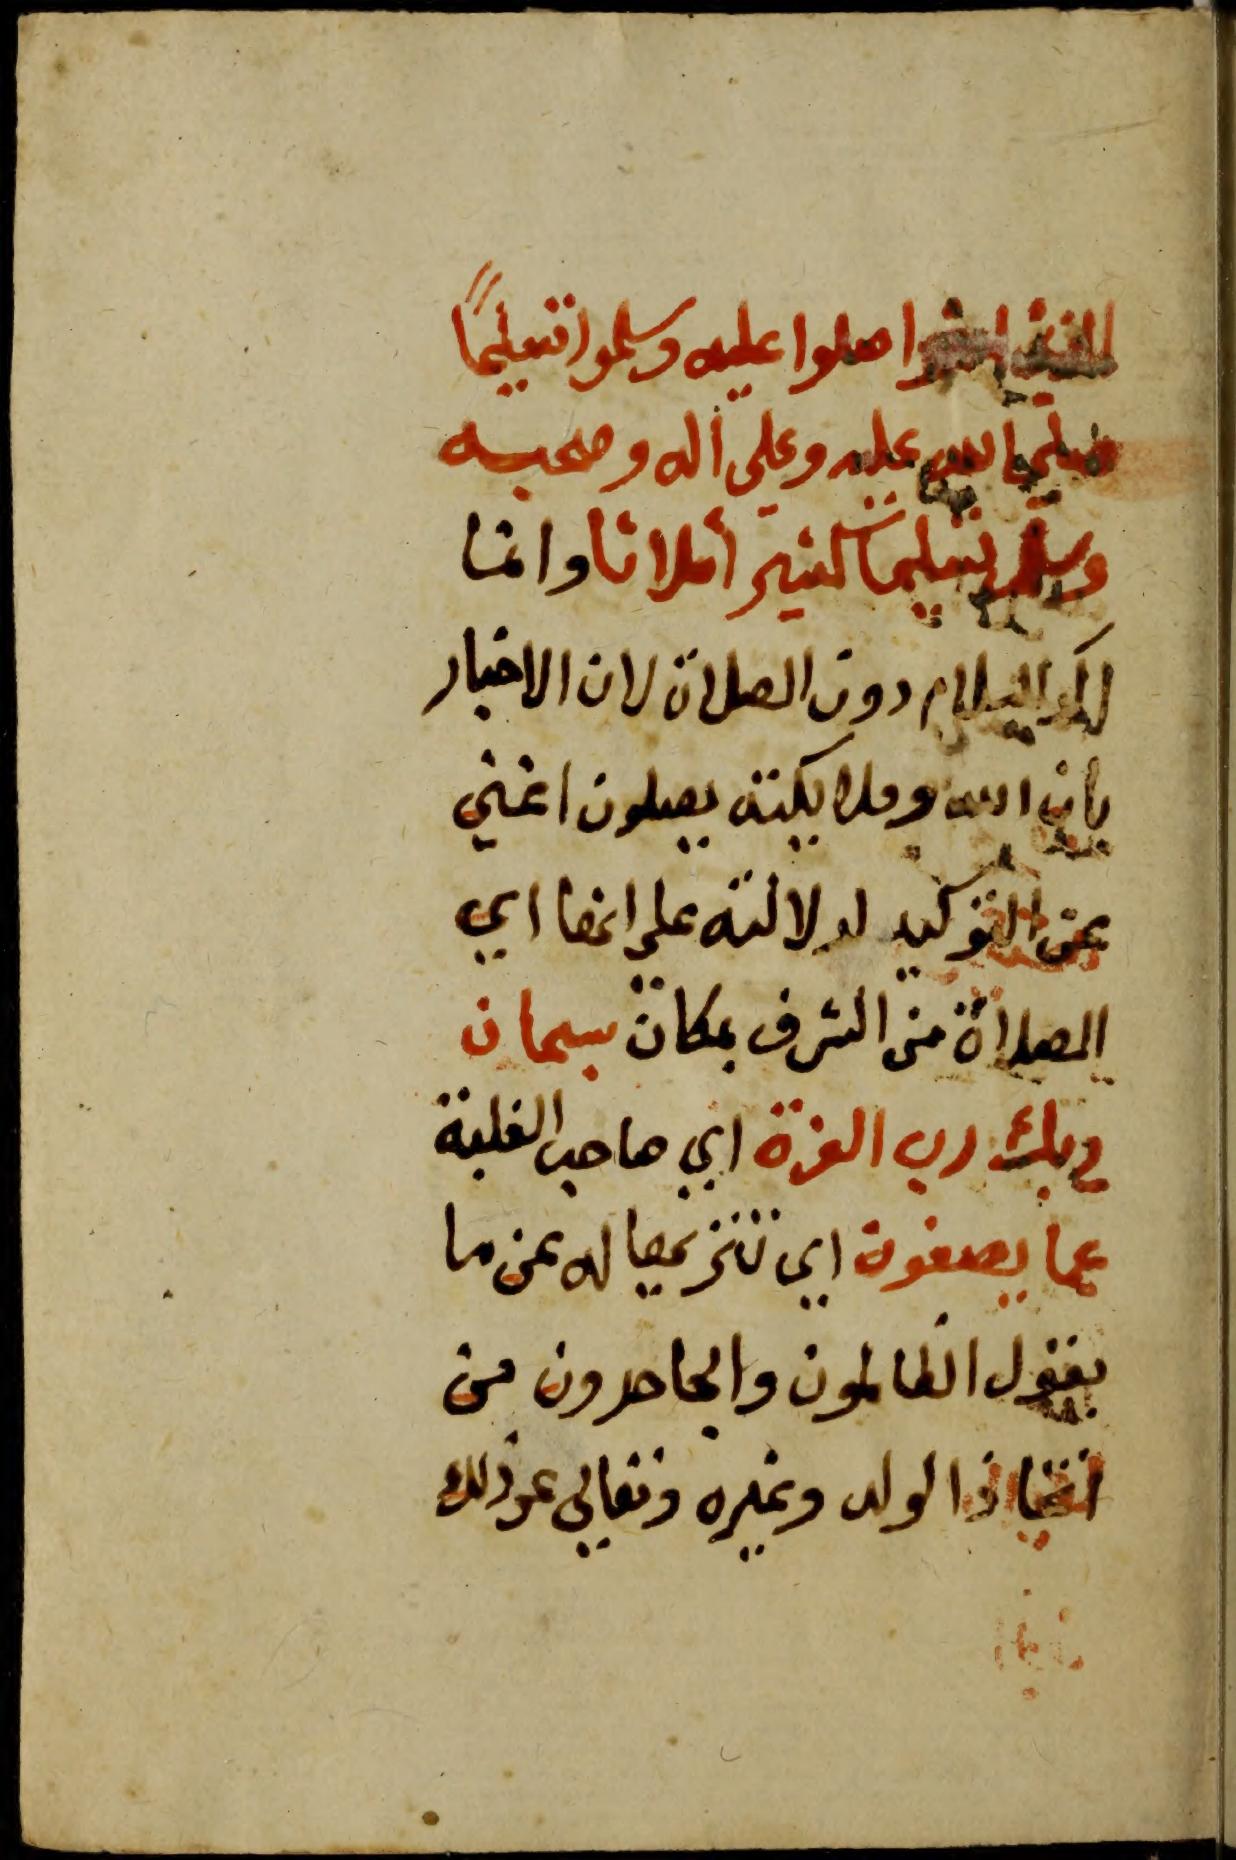 الذين امنوا صلوا عليه وسلموا تسليما
صلى الله عليه وعلى أله وصحبه
وسلم تسليما كثيرا ثلاثا وانما
اكد السلام دون الصلاة لان الاخبار
بان الله وملايكته يصلون اغني
عن التوكيد لدلالته على انها اي
الصلاة من الشرف بمكان سبحان
ربك رب العزة اي صاحب الغلبة
عما يصفون اي تنزيها له عن ما
يقول الظالمون والجاحدون من
اتخاذ الولد وغيره وتعالي عن ذلك